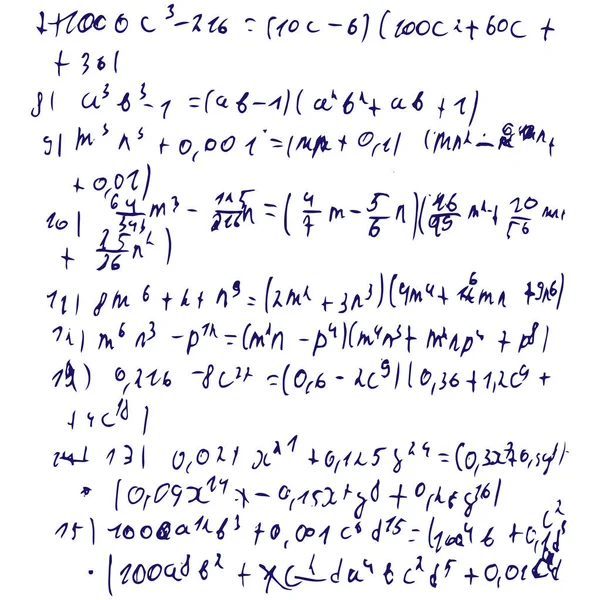 7+1000c³-216 = (10c-6)(100c²+60c+
+36)
8) a³b³-1 = (ab-1)(a²b²+ab+1)
9) m³n³+0,001 = (mn+0,1)
+0,01)
10) 64/343 m³ - 125/216 n = (4/7 m - 5/6 n)(16/49 m² + 20/56 mn
+ 25/36 n²)
11) 8m⁶+27n⁹ = (2m²+3n³)(4m⁴+6mn+9n⁶)
12) m⁶n³-p¹² = (m²n-p⁴)(m⁴n³+m²np⁴+p⁸)
0,216-8c²⁷ = (0,6-2c⁹)(0,36+1,2c⁹+
+4c¹⁸)
13) 0,021x²¹+0,125y²⁴ = (0,3x⁷+0,5y⁸)
(0,09x¹⁴ - 0,15x⁷y⁸+0,25y¹⁶)
15) 1000a¹²b³+0,001c⁶d¹⁵ = (10a⁴b+0,1c²d⁵
·(100a⁸b²+ da⁴bc²d⁵+0,01